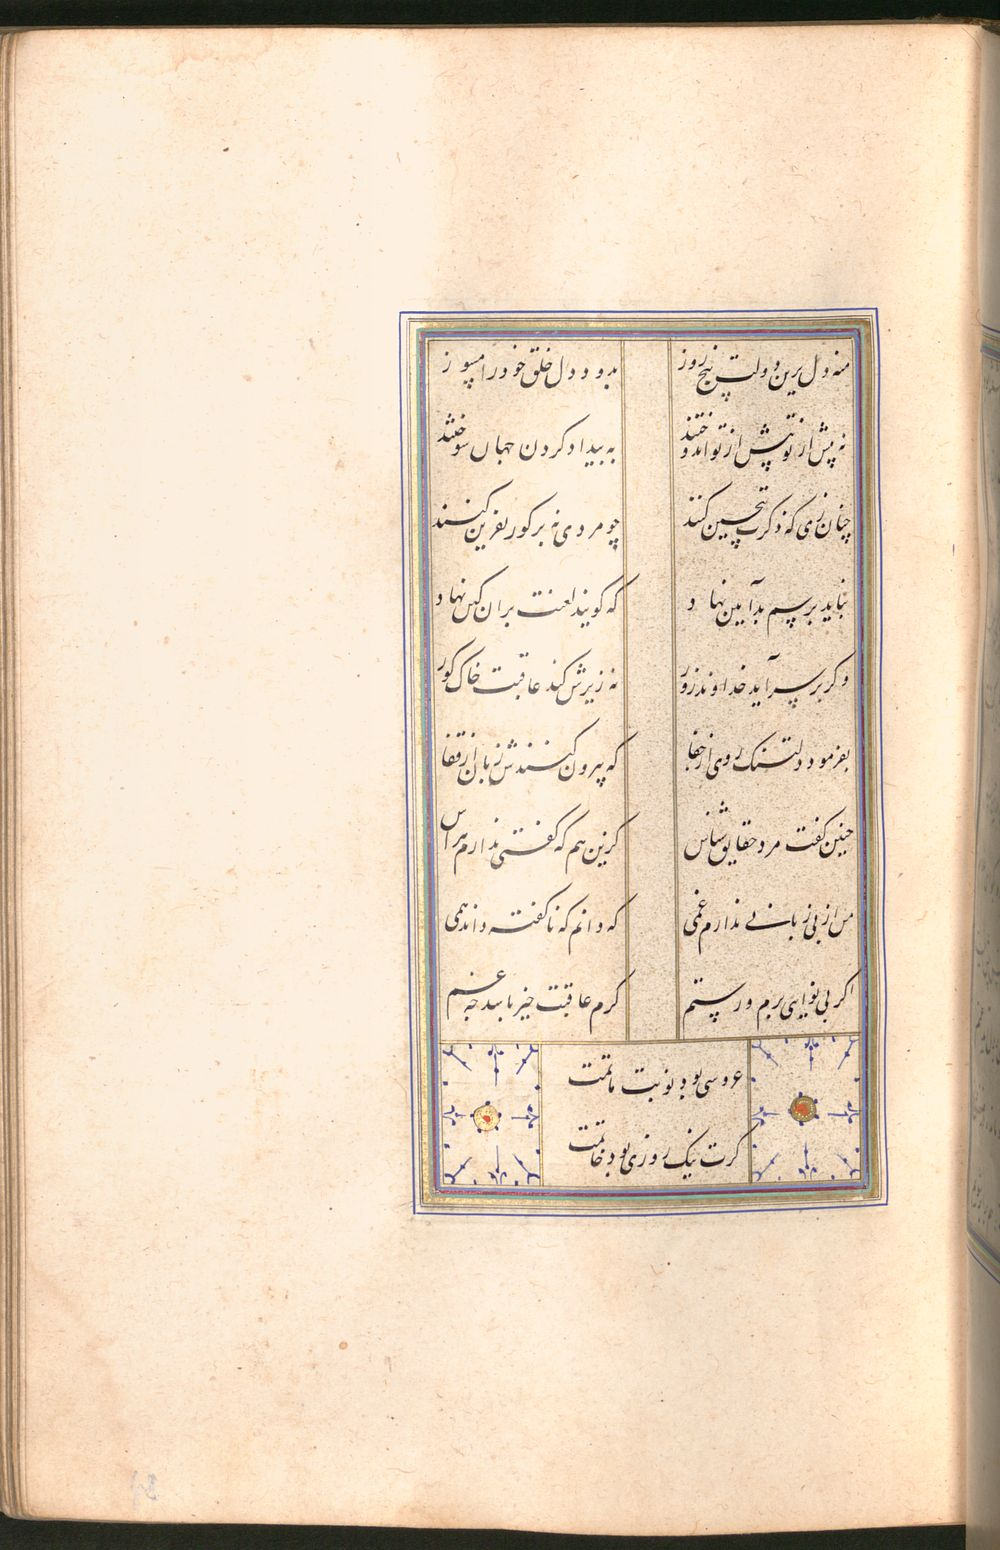 منه دل برین دولت پنج روز بدود دل خلق خود را مسوز
نه پیش از تو بیش از تو اندوختند به بیداد کردن جهان سوختند
چنان زی که ذکرت بتحسین کنند چو مردی نه بر گور نفرین کنند
نباید برسم بد آیین نهاد که گویند لعنت بران کین نهاد
وگر بر سر آید خداوند زور نه زیرش کند عاقبت خاک گور
بفرمود دلتنک روی از جفا که بیرون کنندش زبان از قفا
چنین گفت مرد حقایق شناس کزین هم که گفتی ندارم هراس
من از بی زبانی ندارم غمی که دانم که ناگفته داند همی
اگر بی نوایی برم ور ستم گرم عاقبت خیر باشد چه غم
عروسی بود نوبت ماتمت
گرت نیک روزی بود خاتمت